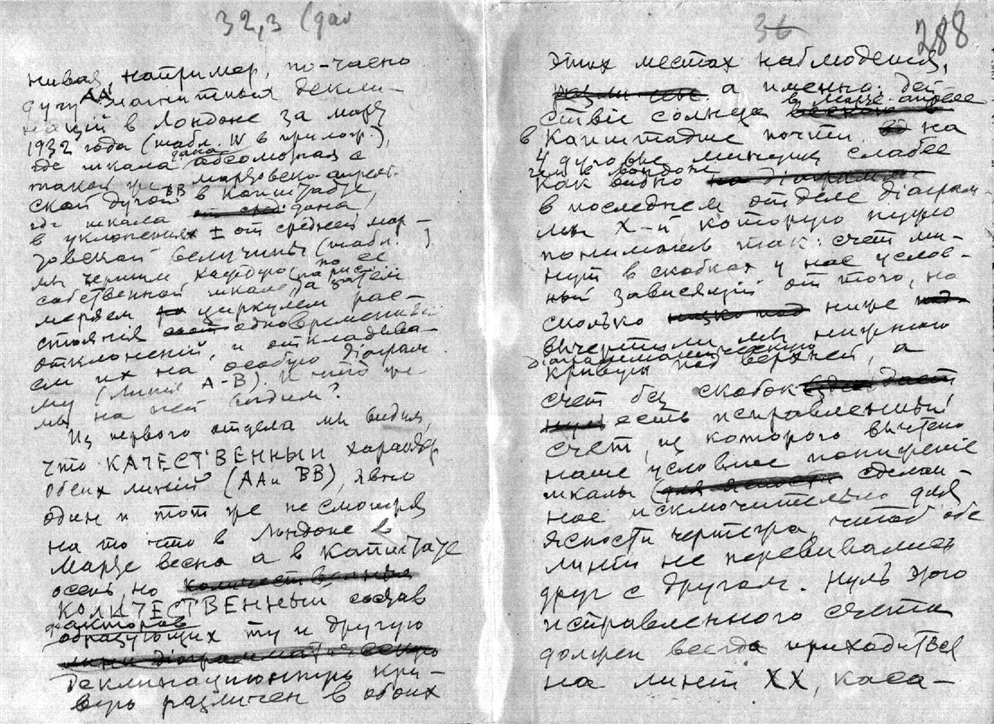 32,3 (
нивая, например, по-часно
дугу АА магнитныя декли-
націй в Лондоне за март
1932 года (табл. IV в прилож.),
где шкала дана абсолютная с
такой же мартовско-апрел.
ской дугой ВВ в Капштадте,
где шкала дана,
в уклонениях ± от средней мар-
товской величины (табл. )
мы чертим каждую по ее
собственной шкале (на рис.) а затем
меряем циркулем рас-
стояния одновременных
отклонений, и отклады́ва-
ем их на особую діаграм
му (линия А-В). И что же
мы на ней видим?
Из перваго отдела мы видим,
что КАЧЕСТВЕННЫЙ характер
обеих линій (АА и ВВ), явно
один и тот же не смотря
на то что в Лондоне в
Марте весна а в Капштадте
осень, но количественные
КОЛИЧЕСТВЕННЫЙ состав
факторов
образующих ту и другую
деклинаціонную кри-
вую различен в обоих
36 288
этих местах наблюдения,
а именно: дей
ствіе солнца в Марте-апреле
в Капштадте почти на
4 дуговые минуты слабее
чем в Лондоне
как видно
в последнем отделе діаграм-
мы X-й которую нужно
понимать так: счет ми-
нут в скобках у нас услов-
ный зависящій от того, на
сколько ниже
вычертили мы нижнюю
діаграмматическую
кривую под верхней, а
счет без скобок
есть исправленный
счет, из которого вычтено
наше условное понижение
шкалы сделан-
ное исключительно для
ясности чертежа, чтоб обе
линіи не перевивались
друг с другом. Нуль этого
исправленного счета
должен всегда приходиться
на линіи XX, каса-